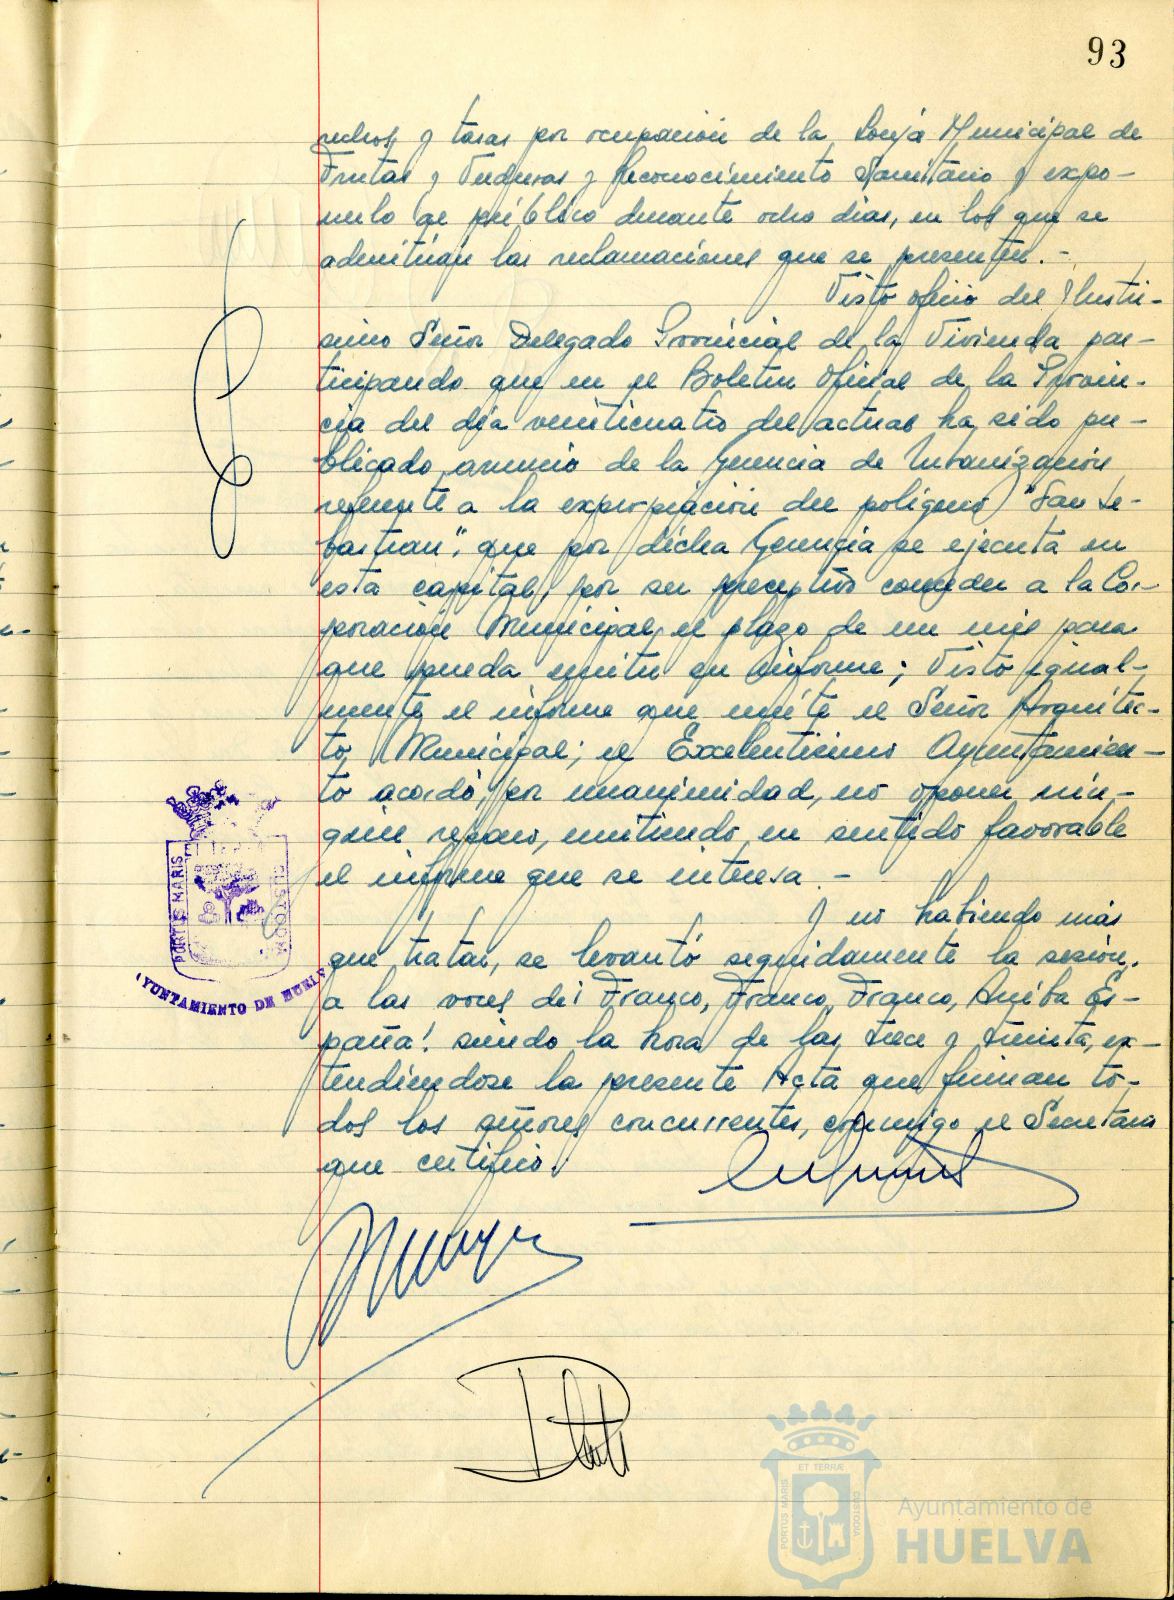 93
rechos y tasas por ocupación de la Lonja Municipal de
Frutas y Verduras y Reconocimiento Sanitario y expo-
nerlo al público durante ocho días, en los que se
admitirán las reclamaciones que se presenten.-
Visto oficio del Ilustrí-
simo Señor Delegado Provincial de la Vivienda par-
ticipando que en el Boletín Oficial de la Provin-
cia del día veinticuatro del actual ha sido pu-
blicado anuncio de la Gerencia de Urbanización
referente a la expropiación del polígono "San Se-
bastian", que por dicha Gerencia se ejecuta en
esta capital, por ser preceptivo conceder a la Cor-
poración Municipal el plazo de un mes para
que pueda emitir su informe; Visto igual-
mente el informe que emite el Señor Arquitec-
to Municipal; el Excelentísimo Ayuntamien-
to acordó, por unanimidad, no oponer nin-
gún reparo, emitiendo en sentido favorable
el informe que se interesa.-
Y no habiendo más
que tratar, se levantó seguidamente la sesión,
a las voces de ¡Franco, Franco, Franco, Arriba Es-
paña! siendo la hora de las trece y treinta, ex-
tendiéndose la presente Acta que firman to-
dos los señores concurrentes, conmigo el Secretario
que certifico.
PORTUS MARIS
CUSTODIA
AYUNTAMIENTO DE HUELVA
ET TERRÆ
PORTUS MARIS
CUSTODIA
Ayuntamiento de
HUELVA